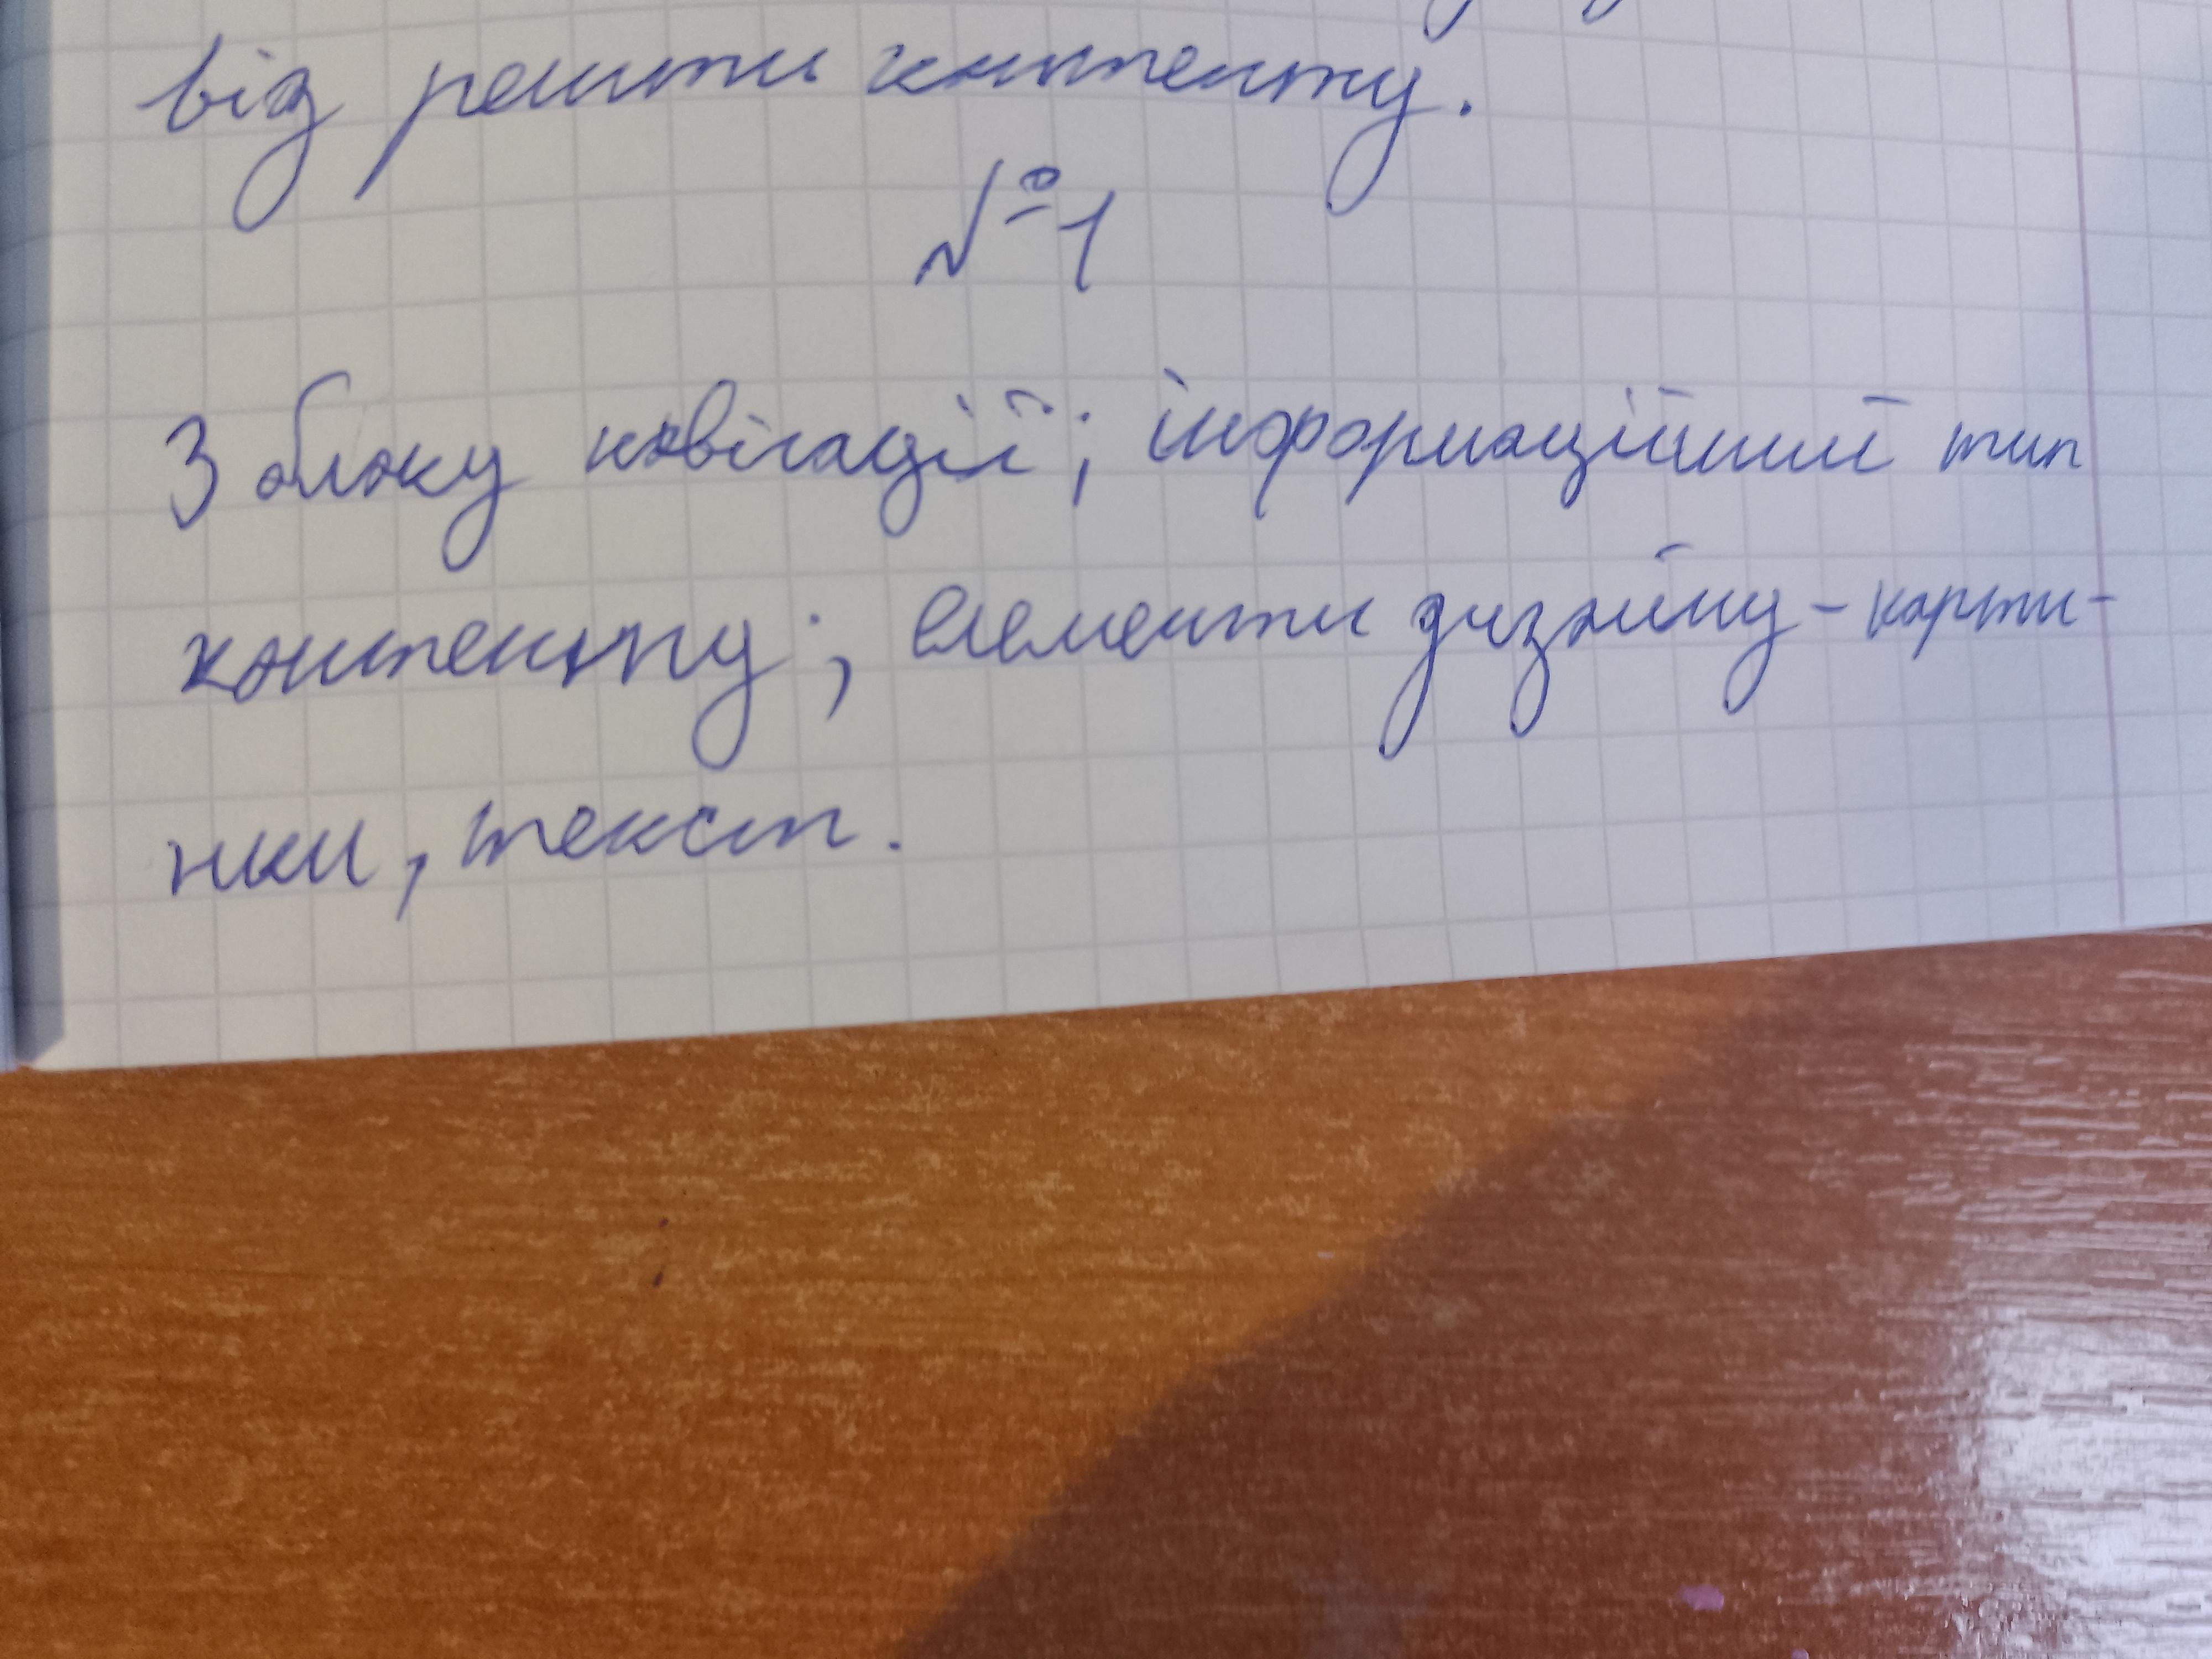 від решти контенту.
№1
З блоку навігації; інформаційний тип
контенту; елементи дизайну - карти-
нки, текст.